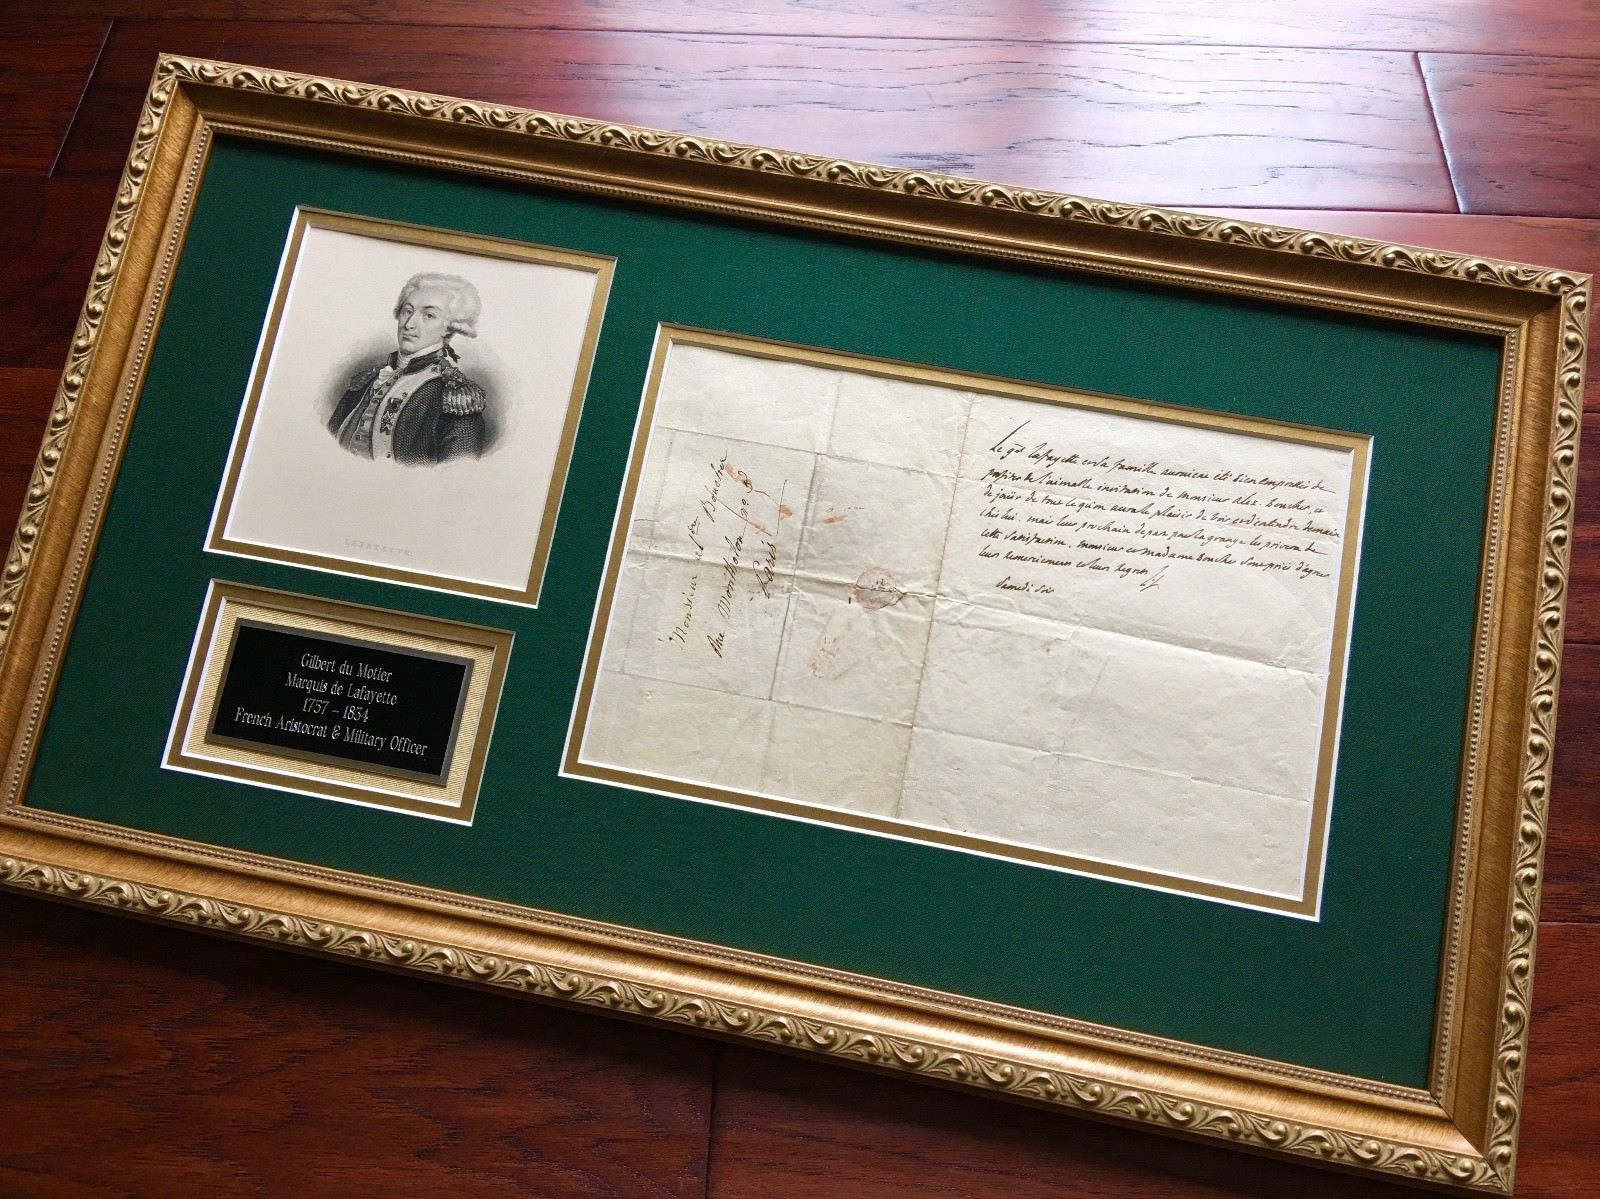 LAFAYETTE.
Gilbert du Motier
Marquis de Lafayette
1757 – 1834
French Aristocrat & Military Officer
Monsieur Boucher
Rue Montholon
Paris
Le gal Lafayette et sa famille auroient été bien empressés de
profiter de l'aimable invitation de Monsieur Alex. Boucher, et
de jouir de tout ce qu'on aura le plaisir de voir et d'entendre demain
chés lui. mais leur prochain depart pour la grange les privera de
cette satisfaction. Monsieur et Madame Boucher sont priés d'agréer
leurs remerciemens et leurs regrets
Samedi soir